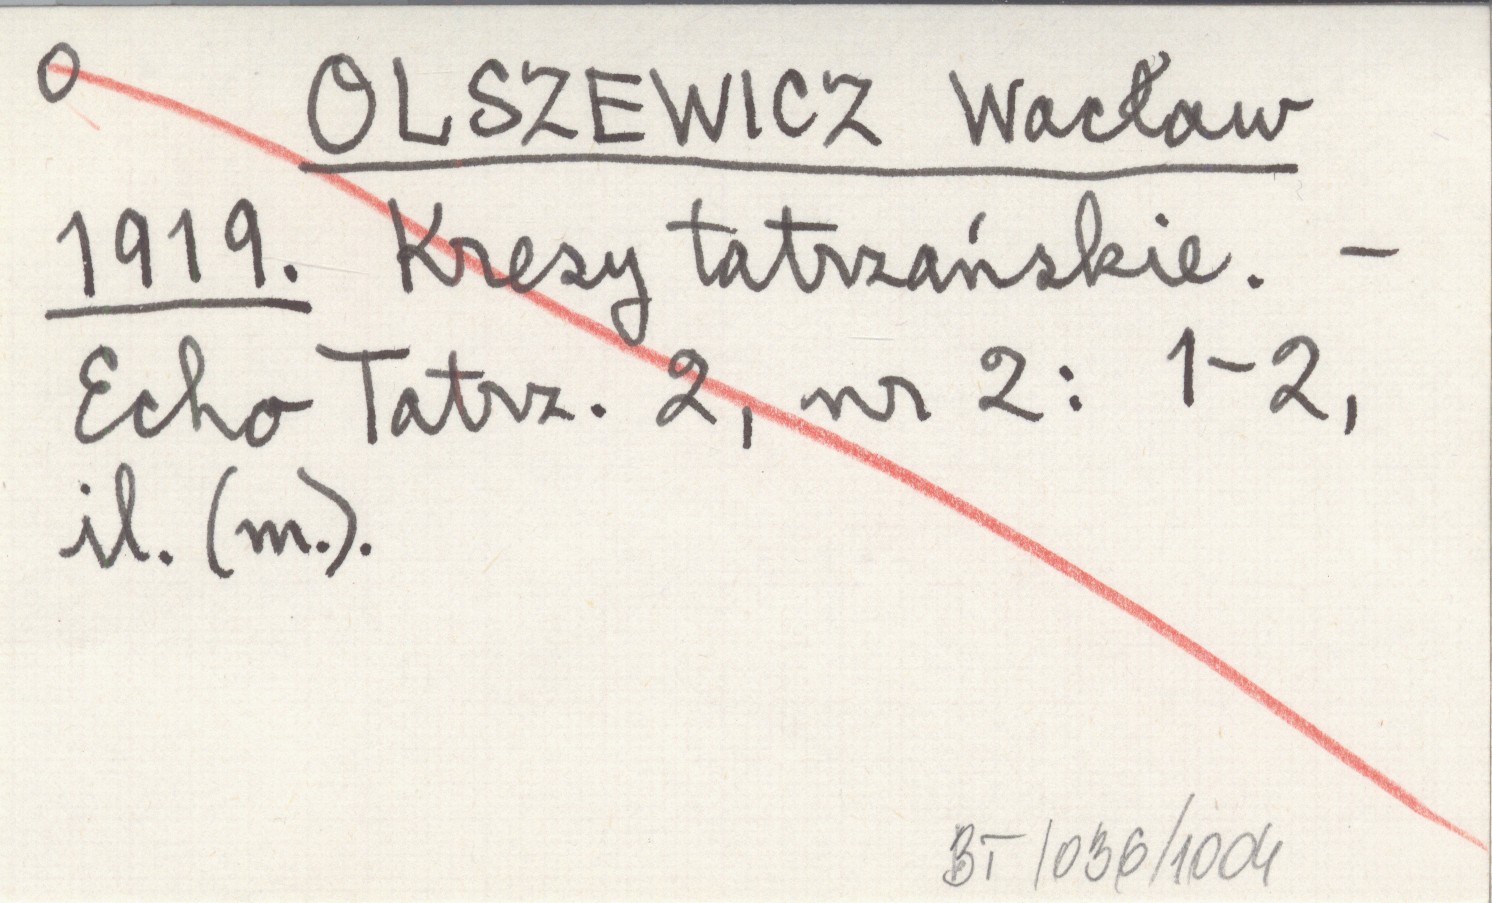 O OLSZEWICZ Wacław
1919. Kresy tatrzańskie. -
Echo Tatrz. 2, nr 2: 1-2,
il. (m.).
BT/036/1004